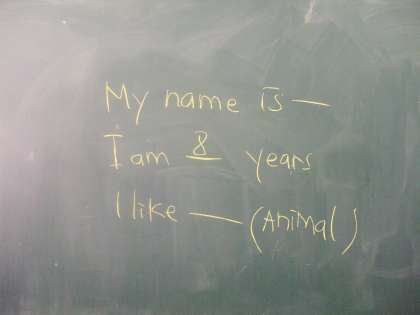 My name is —
I am 8 years
I like — (Animal)